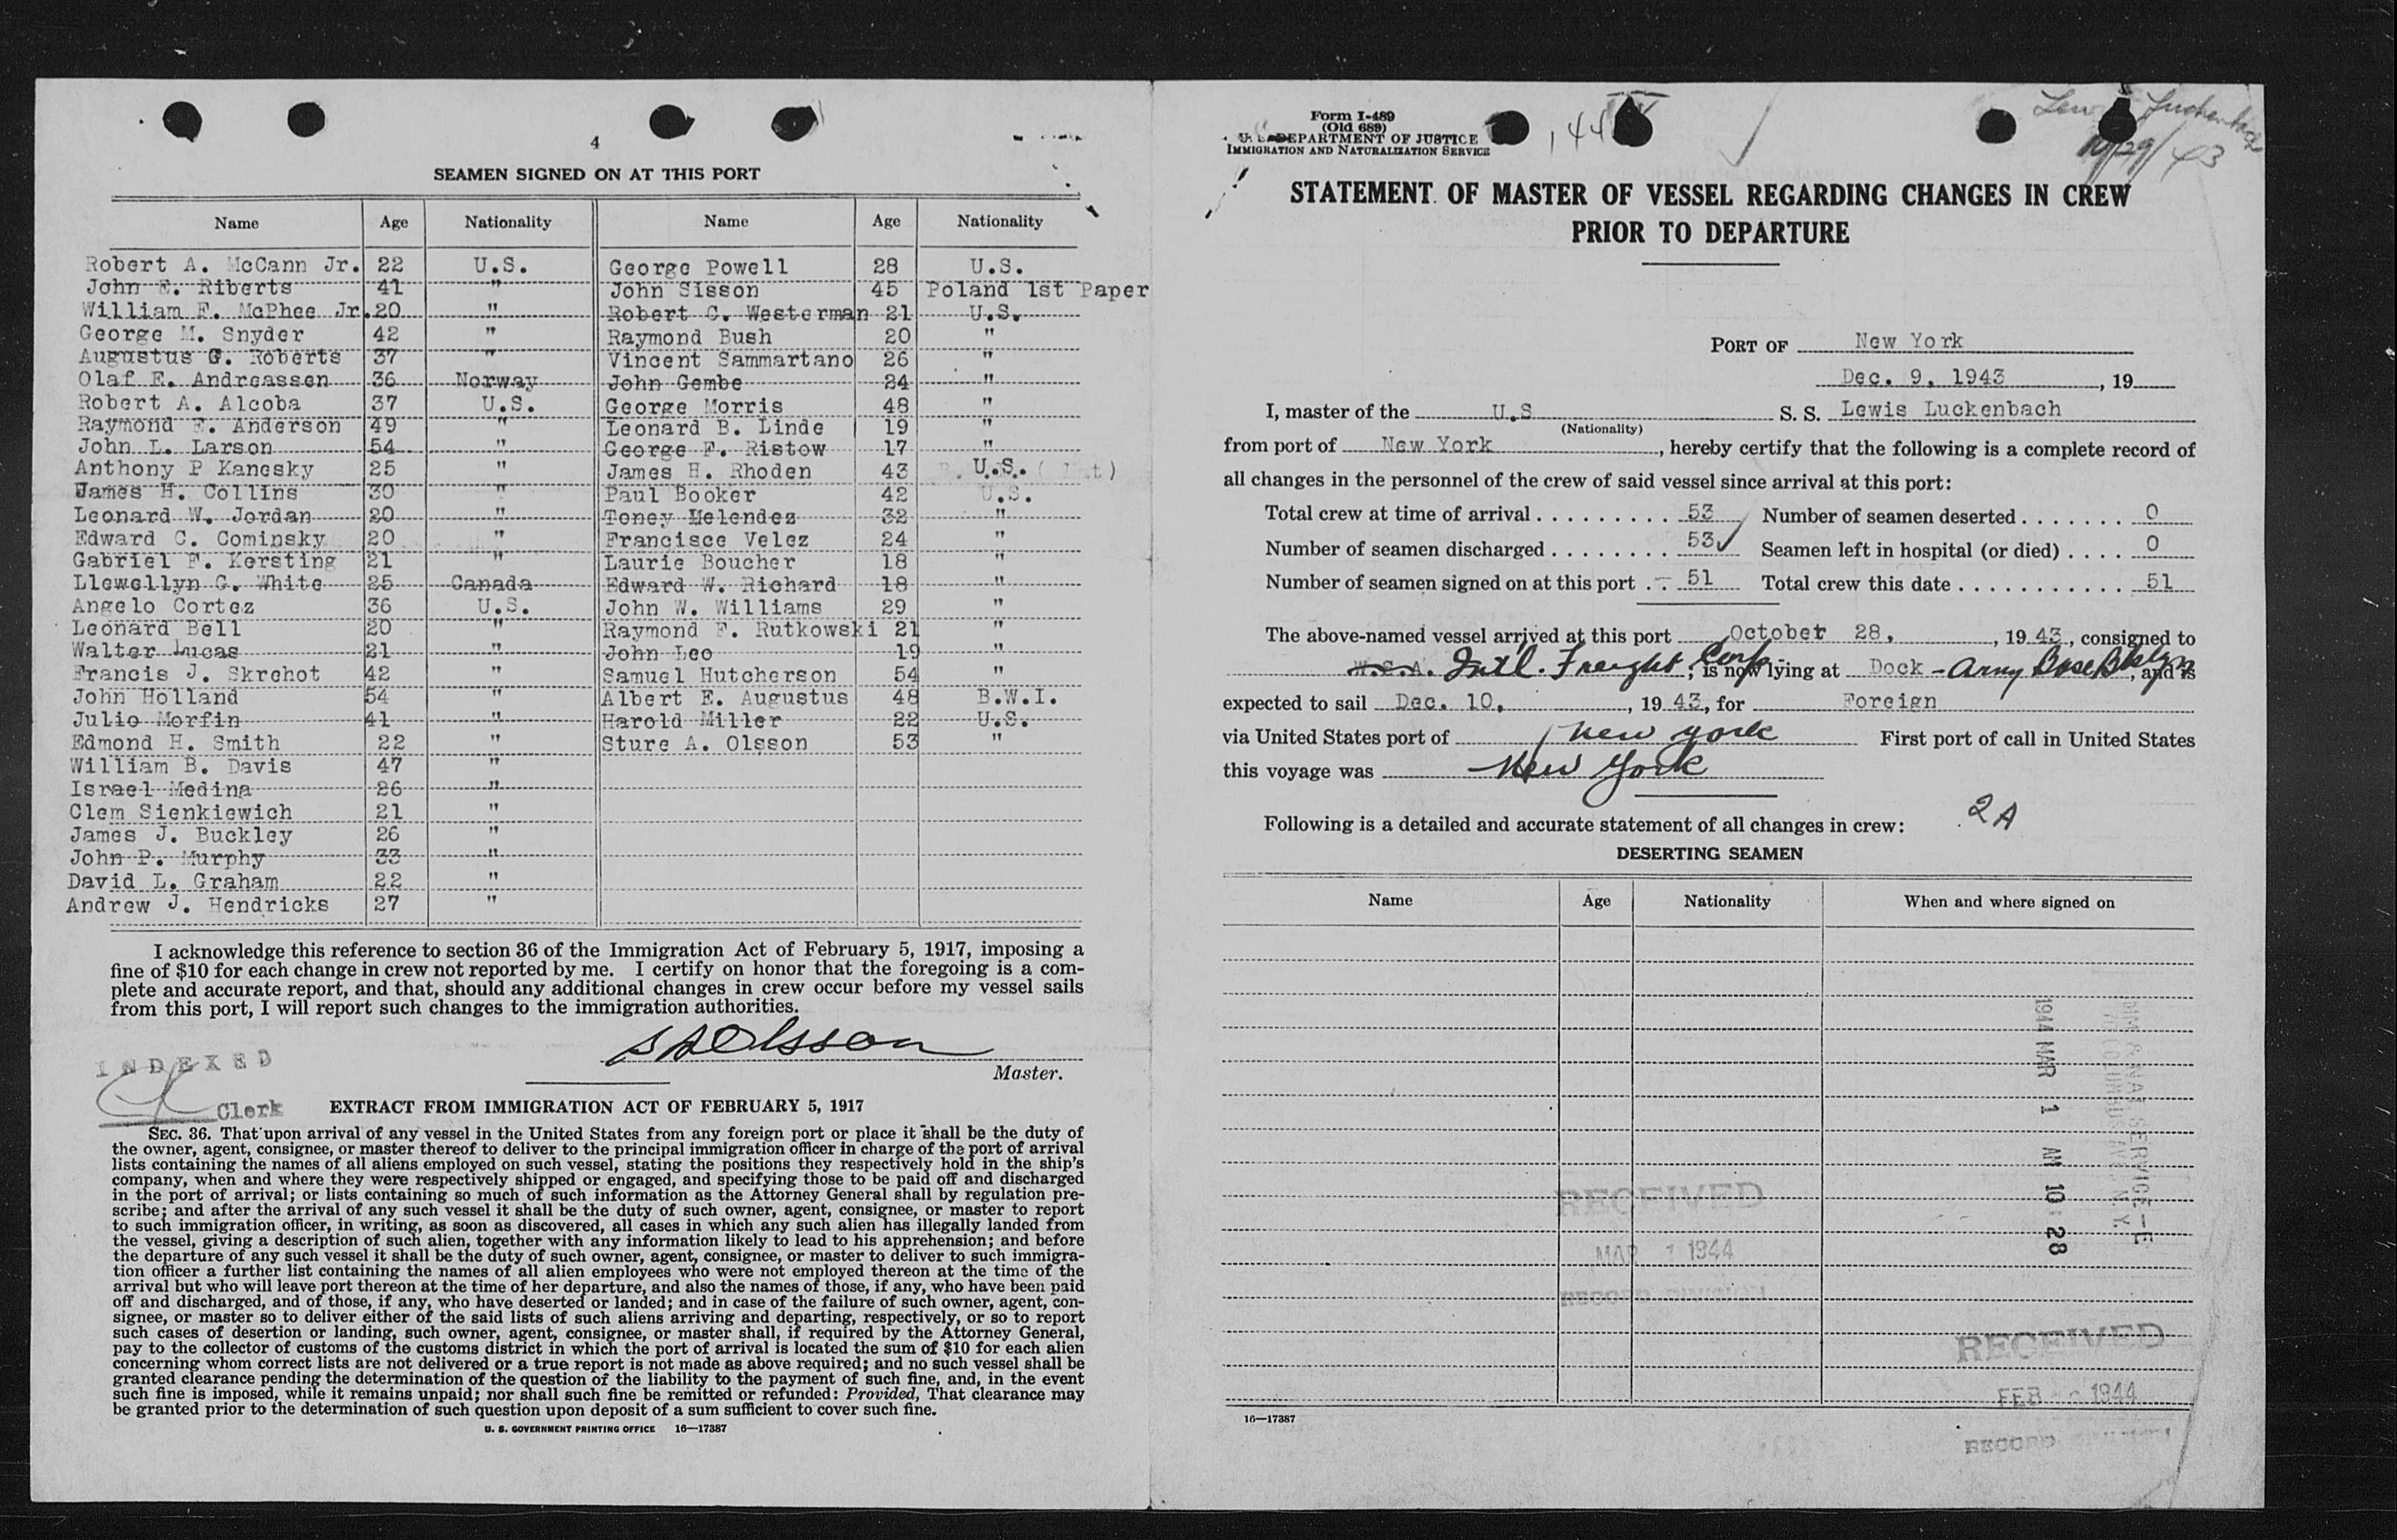 4
SEAMEN SIGNED ON AT THIS PORT
Name Age Nationality Name Age Nationality
Robert A. McCann Jr. 22 U.S. George Powell 28 U.S.
John E. Riberts 41 " John Sisson 45 Poland 1st Paper
William F. McPhee Jr. 20 " Robert C. Westerman 21 U.S.
George M. Snyder 42 " Raymond Bush 20 "
Augustus G. Roberts 37 " Vincent Sammartano 26 "
Olaf E. Andreassen 36 Norway John Gembe 24 "
Robert A. Alcoba 37 U.S. George Morris 48 "
Raymond F. Anderson 49 " Leonard B. Linde 19 "
John L. Larson 54 " George F. Ristow 17 "
Anthony P Kanesky 25 " James H. Rhoden 43 U.S.
James H. Collins 30 " Paul Booker 42 U.S.
Leonard W. Jordan 20 " Toney Melendez 32 "
Edward C. Cominsky 20 " Francisco Velez 24 "
Gabriel F. Kersting 21 " Laurie Boucher 18 "
Llewellyn G. White 25 Canada Edward W. Richard 18 "
Angelo Cortez 36 U.S. John W. Williams 29 "
Leonard Bell 20 " Raymond F. Rutkowski 21 "
Walter Lucas 21 " John Leo 19 "
Francis J. Skrehot 42 " Samuel Hutcherson 54 "
John Holland 54 " Albert E. Augustus 48 B.W.I.
Julio Morfin 41 " Harold Miller 22 U.S.
Edmond H. Smith 22 " Sture A. Olsson 53 "
William B. Davis 47 "
Israel Medina 26 "
Clem Sienkiewich 21 "
James J. Buckley 26 "
John P. Murphy 33 "
David L. Graham 22 "
Andrew J. Hendricks 27 "
I acknowledge this reference to section 36 of the Immigration Act of February 5, 1917, imposing a
fine of $10 for each change in crew not reported by me. I certify on honor that the foregoing is a com-
plete and accurate report, and that, should any additional changes in crew occur before my vessel sails
from this port, I will report such changes to the immigration authorities.
S A Olsson
Master.
INDEXED
Clerk
EXTRACT FROM IMMIGRATION ACT OF FEBRUARY 5, 1917
SEC. 36. That upon arrival of any vessel in the United States from any foreign port or place it shall be the duty of
the owner, agent, consignee, or master thereof to deliver to the principal immigration officer in charge of the port of arrival
lists containing the names of all aliens employed on such vessel, stating the positions they respectively hold in the ship's
company, when and where they were respectively shipped or engaged, and specifying those to be paid off and discharged
in the port of arrival; or lists containing so much of such information as the Attorney General shall by regulation pre-
scribe; and after the arrival of any such vessel it shall be the duty of such owner, agent, consignee, or master to report
to such immigration officer, in writing, as soon as discovered, all cases in which any such alien has illegally landed from
the vessel, giving a description of such alien, together with any information likely to lead to his apprehension; and before
the departure of any such vessel it shall be the duty of such owner, agent, consignee, or master to deliver to such immigra-
tion officer a further list containing the names of all alien employees who were not employed thereon at the time of the
arrival but who will leave port thereon at the time of her departure, and also the names of those, if any, who have been paid
off and discharged, and of those, if any, who have deserted or landed; and in case of the failure of such owner, agent, con-
signee, or master so to deliver either of the said lists of such aliens arriving and departing, respectively, or so to report
such cases of desertion or landing, such owner, agent, consignee, or master shall, if required by the Attorney General,
pay to the collector of customs of the customs district in which the port of arrival is located the sum of $10 for each alien
concerning whom correct lists are not delivered or a true report is not made as above required; and no such vessel shall be
granted clearance pending the determination of the question of the liability to the payment of such fine, and, in the event
such fine is imposed, while it remains unpaid; nor shall such fine be remitted or refunded: Provided, That clearance may
be granted prior to the determination of such question upon deposit of a sum sufficient to cover such fine.
U. S. GOVERNMENT PRINTING OFFICE 16—17387
Form I-489
(Old 689)
U. S. DEPARTMENT OF JUSTICE
IMMIGRATION AND NATURALIZATION SERVICE
Lewis Luckenbach
10/29/43
STATEMENT OF MASTER OF VESSEL REGARDING CHANGES IN CREW
PRIOR TO DEPARTURE
PORT OF New York
Dec. 9, 1943, 19
I, master of the U.S S. S. Lewis Luckenbach
(Nationality)
from port of New York, hereby certify that the following is a complete record of
all changes in the personnel of the crew of said vessel since arrival at this port:
Total crew at time of arrival 53 Number of seamen deserted 0
Number of seamen discharged 53 Seamen left in hospital (or died) 0
Number of seamen signed on at this port 51 Total crew this date 51
The above-named vessel arrived at this port October 28, 1943, consigned to
W.S.A. Intl. Freight Corp., is now lying at Dock - Army Base Bklyn, and is
expected to sail Dec. 10, 1943, for Foreign
via United States port of New York First port of call in United States
this voyage was New York
2A
Following is a detailed and accurate statement of all changes in crew:
DESERTING SEAMEN
Name Age Nationality When and where signed on
1944 MAR 1 AM 10 28
RECEIVED
MAR 1 1944
RECORD DIVISION
RECEIVED
FEB 1944
RECORD
16—17387